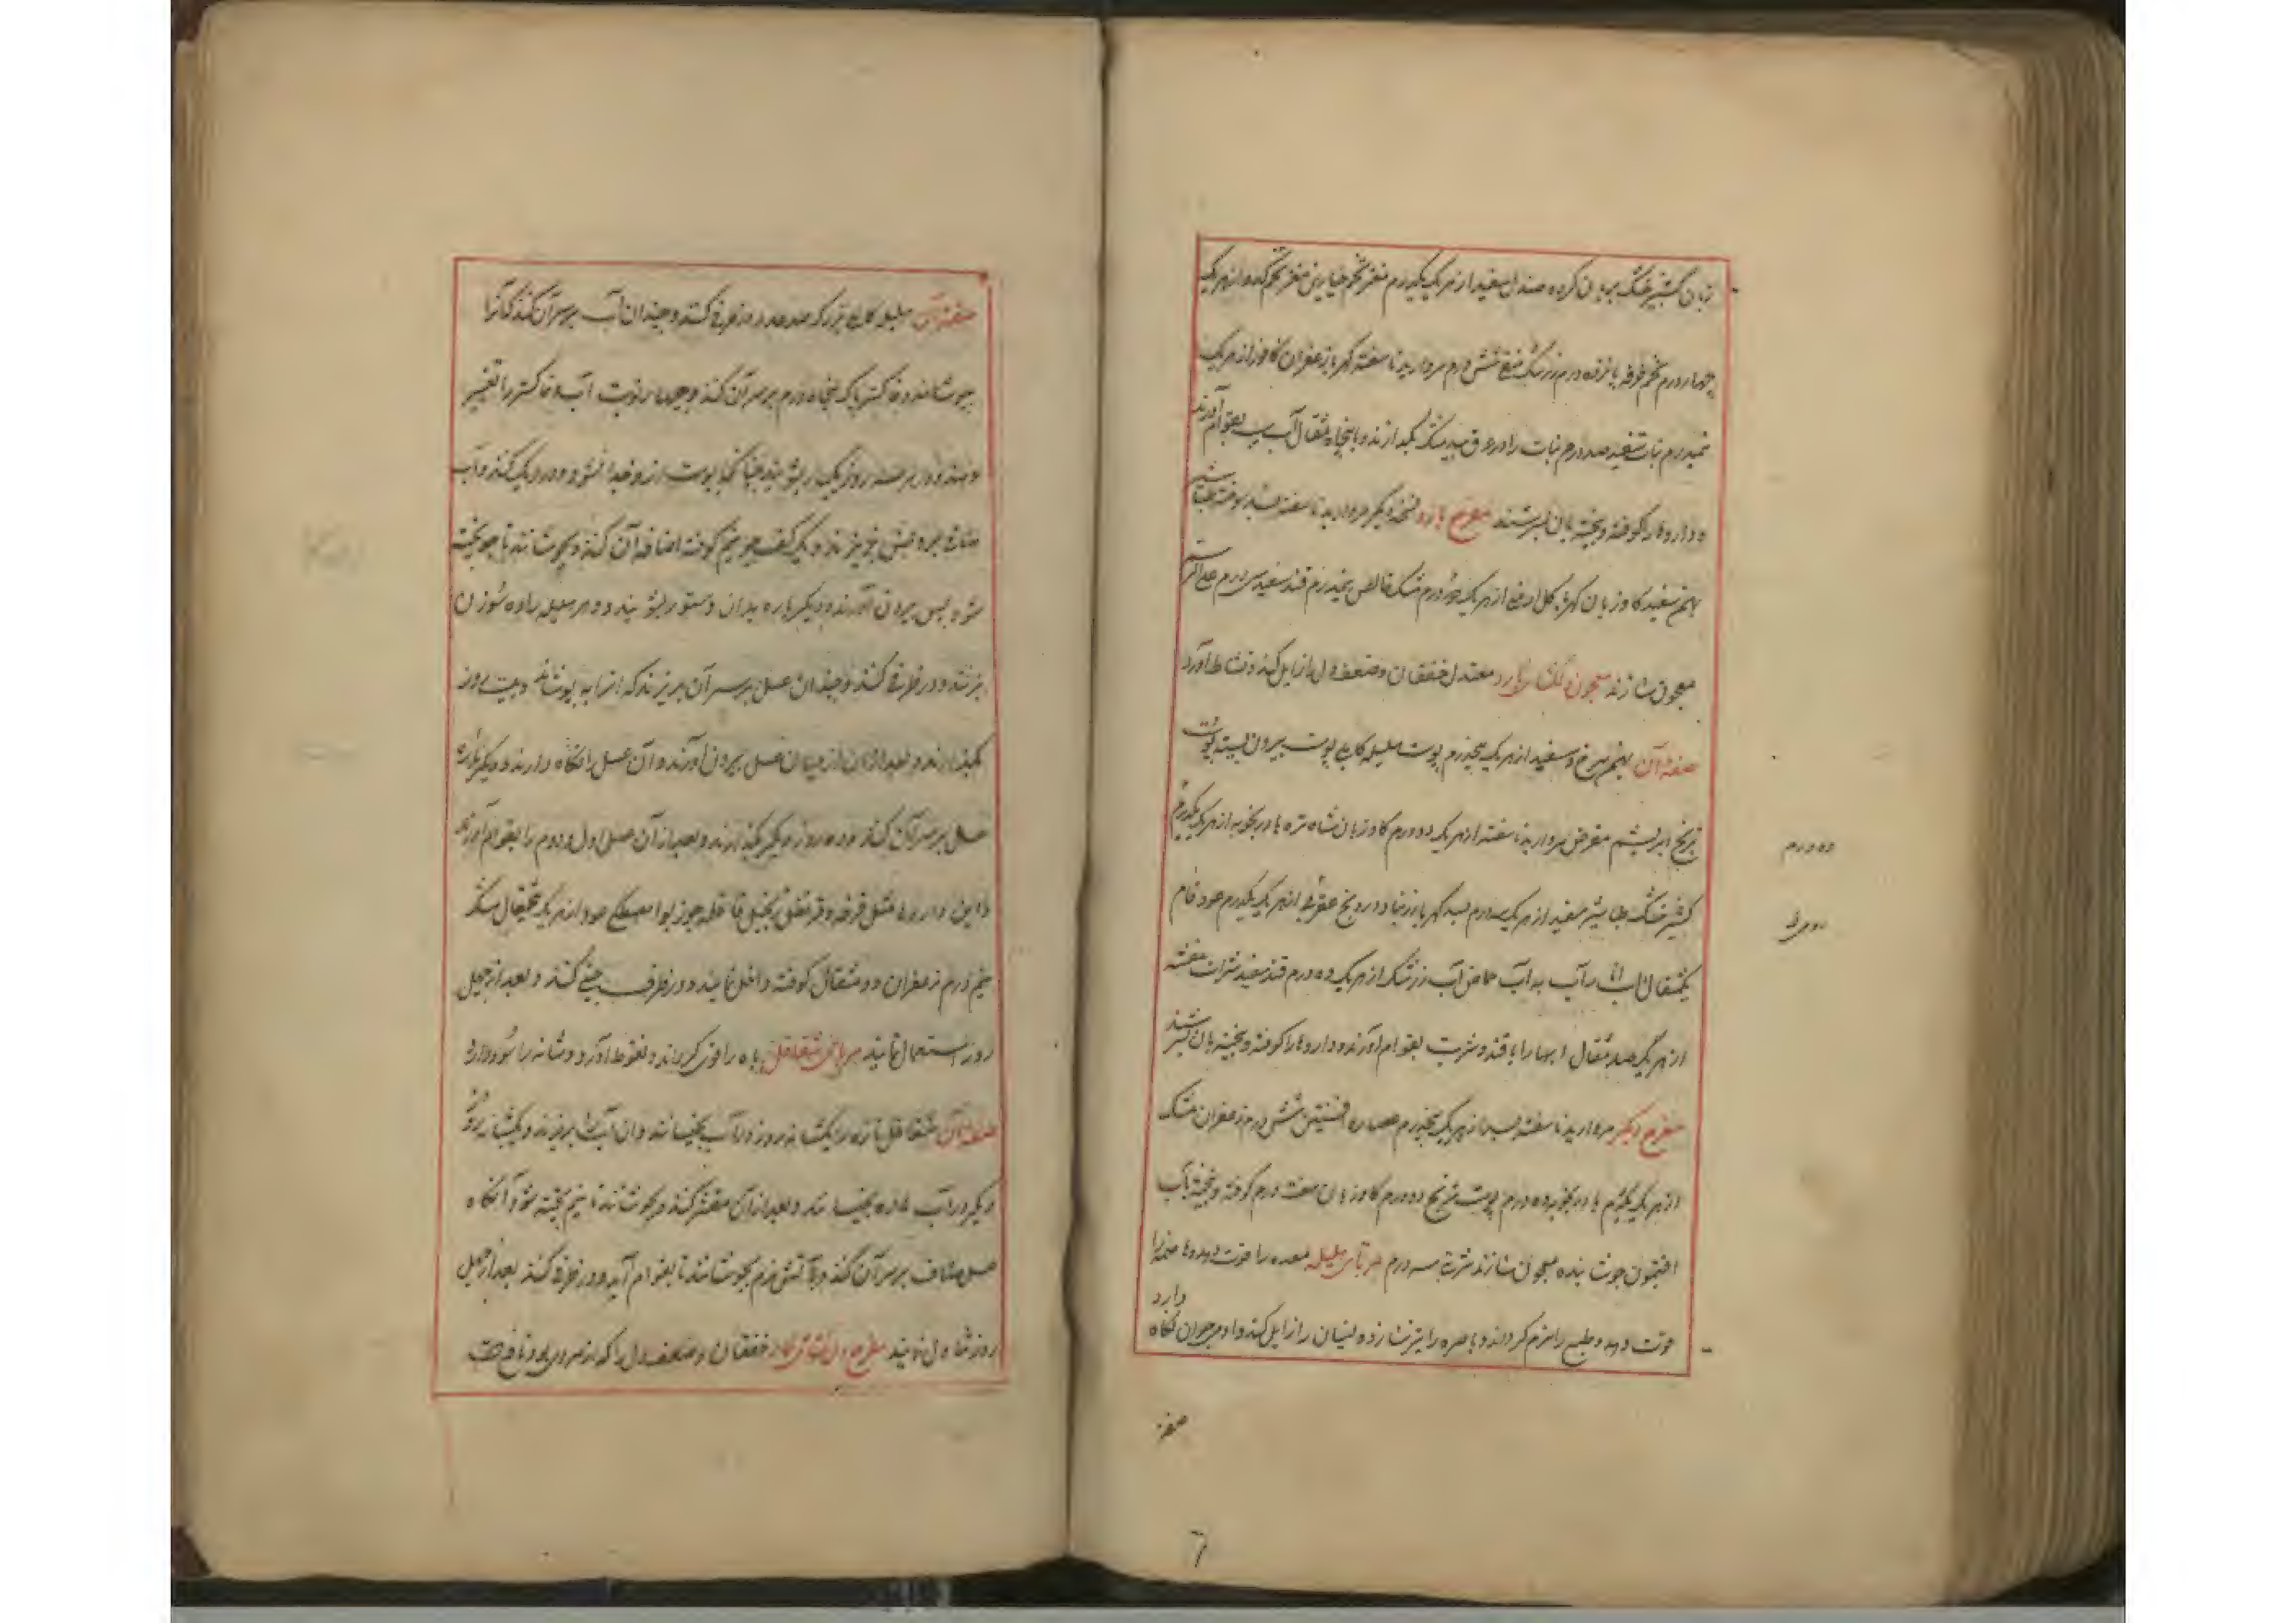 زبان کشنیز خشک بریان کرده صندل سفید از هر یک یکدرم مغز تخم خیارین مغز تخم کدو از هر یک
چهار درم تخم خرفه پانزده درم زرشک منقی شش درم مروارید ناسفته کهربا زعفران کافور از هر یک
نیمدرم نبات سفید صد درم نبات را در عرق بیدمشک بگدازند و با پنجاه مثقال آب سیب بقوام آورند
و داروها را کوفته و بیخته بان بسرشند مفرح بارد نسخه دیگر مروارید ناسفته بسد سوخته طباشیر
بهمن سفید کاوزبان کهربا کل ارمنی از هر یک دو درم مشک خالص نیمدرم قند سفید سی درم علی الرسم
معجون سازند معجون دلکشا بارد معتدل خفقان و ضعف دل زایل کند و نشاط آورد
صفت آن بهمن سرخ و سفید از هر یک پنجدرم پوست هلیله کابلی پوست بیرون پسته پوست
ترنج ابریشم مقرض مروارید ناسفته از هر یک دو درم کاوزبان شاه تره بادرنجبویه از هر یک یکدرم
ده درم
کشنیز خشک طباشیر سفید از هر یک سه درم بسد کهربا زرنباد درونج عقربی از هر یک یکدرم عود خام
یکمثقال آب انار آب به آب حماض آب زرشک از هر یک ده درم قند سفید شراب بنفشه
از هر یک صد مثقال ابها را با قند و شربت بقوام آورند و داروها را کوفته و بیخته بان بسرشند
مفرح دیگر مروارید ناسفته بسد از هر یک پنجدرم عصاره افسنتین شش درم زعفران مشک
از هر یک یکدرم بادرنجبویه ده درم پوست ترنج ده درم کاوزبان هفت درم کوفته و بیخته بآب
افتیمون جوشانیده معجون سازند شربت سه درم مربای هلیله معده را قوت دهد و هاضمه را
قوت دهد و طبع را نرم کرداند و باصره را تیز سازد و نسیان را زایل کند و اومی جوان نکاه
دارد
صفت
6
صفت آن هلیله کابلی بزرک صد عدد در ظرفی کنند و چندان آب بر سر آن کنند که آنرا
بپوشاند و خاکستر پاک پنجاه درم بر سر آن کنند و چهار نوبت آب و خاکستر را تغییر
دهند و در هر سه روز یکبار بشویند چنانکه پوست از و جدا نشود و در دیک کنند و آب
صافی بر وی ریزند و یک کف جو نیم کوفته اضافه آن کنند و بجوشانند تا جو پخته
شود پس بیرون آورند و دیکرباره بدان دستور بشویند و هر هلیله را ده سوزن
بزنند و در ظرفی کنند و چندان عسل بر سر آن بریزند که آنرا بپوشاند و بیست روز
بگذارند و بعد از ان از میان عسل بیرون آورند و آن عسل را نکاه دارند و دیکرباره
عسل بر سر آن کنند و ده روز دیکر بگذارند و بعد از آن عسل اول و دوم را بقوام آورند
و این داروها مثل قرفه و قرنفل زنجبیل قاقله جوز بوا مصطکی عود از هر یک مثقال مشک
نیم درم زعفران دو مثقال کوفته داخل نمایند و در ظرف چینی کنند و بعد از چهل
روز استعمال نمایند مربای شقاقل باه را قوی کرداند و نعوظ آورد و مثانه را سود دارد
صفت آن شقاقل تازه را یکشبانه روز در آب بخیسانند و ان آب را بریزند و یکشبانه روز
دیکر در آب تازه بخیسانند و بعد از آن مقشر کنند و بجوشانند تا نیم پخته شود آنکاه
عسل صاف بر سر آن کنند و بآتش نرم بجوشانند تا بقوام آید و در ظرفی کنند بعد از چهل
روز تناول نمایند مفرح دلکشای حار خفقان و ضعف دل را که از سردی بود نافع است